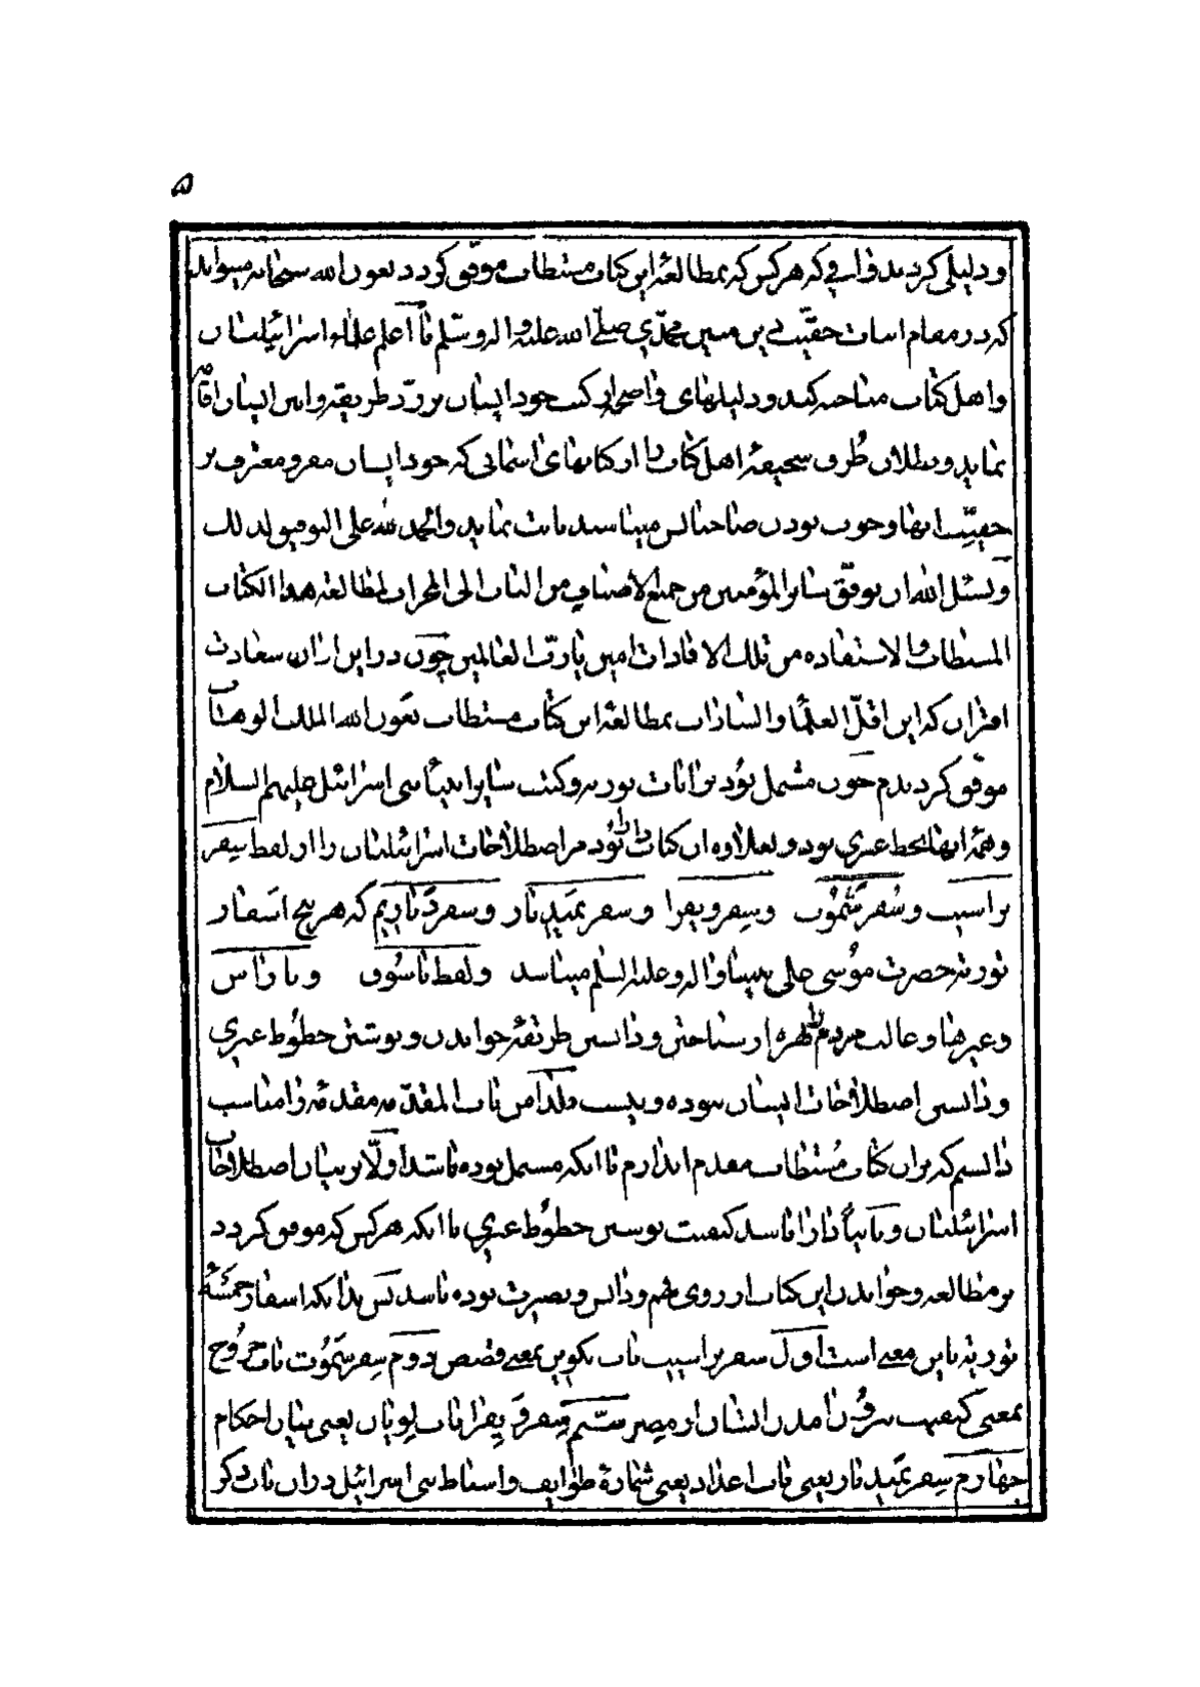 ۵
و دلیلی گردید وافی که هر کس که بمطالعهٔ این کتاب مستطاب موفق گردد بعون الله سبحانه میتواند
که در مقام اثبات حقیّت دین مبین محمّدی صلّی الله علیه و اله و سلّم با اعلم علماء اسرائیلیان
و اهل کتاب مباحثه کند و دلیلهای واضح از کتب خود ایشان بر ردّ طریقه و ایین ایشان اقامه
نماید و بطلان طرف سخیفهٔ اهل کتاب را از کتابهای اسمانی که خود ایشان مقر و معترف بر
حقیّت انها و خوب بودن صاحبانش میباشند ثابت نماید و الحمد لله علی التوفیق لذلک
و نسئل الله ان یوفّق سایر المؤمنین من جمیع الاصناف من الباب الی المحراب لمطالعه هذا الکتاب
المستطاب و الاستفاده من تلک الافادات امین یا ربّ العالمین چون در این اوان سعادت
اقتران که این اقلّ العلما و السادات بمطالعهٔ این کتاب مستطاب بعون الله الملک الوهاب
موفق گردیدم چون مشتمل بود بر ایات توریه و کتب سایر انبیاء بنی اسرائیل علیهم السلام
و همهٔ انها بخط عبری بود و بعلاوه ان کتاب دارا بود مر اصطلاحات اسرائیلیان را از لفظ سفر
براسیت و سفر شموت و سفر ویقرا و سفر بمیدبار و سفر دباریم که هر پنج اسفار
توریه حضرت موسی علی نبینا و اله و علیه السلم میباشد و لفظ پاسوق و پاراش
و غیرها و غالب مردم را بهره از شناختن و دانستن طریقهٔ خواندن و نوشتن خطوط عبری
و دانستن اصطلاحات ایشان نبوده و نیست فلذا من باب المقدّمه مقدمهٔ را مناسب
دانستم که بر ان کتاب مستطاب مقدم اندازم تا انکه مشتمل بوده باشد اولّا بر بیان اصطلاحات
اسرائیلیان و ثانیاً دارا باشد کیفیت نوشتن خطوط عبری تا انکه هر کس که موفق گردد
بر مطالعه و خواندن این کتاب از روی فهم و دانش و بصیرت بوده باشد پس بدانکه اسفار خمسهٔ
توریه باین معنی است اول سفر براسیت باب تکوین بمعنی قصص دوم سفر شموت باب خروج
بمعنی کیفیت بیرون امدن ایشان از مصر سیّم سفر ویقرا باب لویان یعنی بیان احکام
چهارم سفر بمیدبار یعنی باب اعداد یعنی شمارهٔ طوایف و اسباط بنی اسرائیل در ان باب ذکر